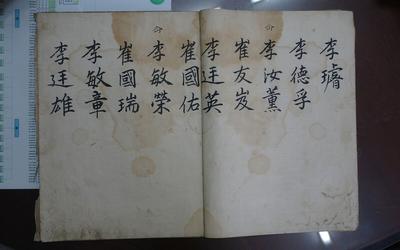 李璿
李德孚
李汝薰
崔友岌
李廷英
崔國佑
李敏榮
崔國瑞
李敏章
李廷雄